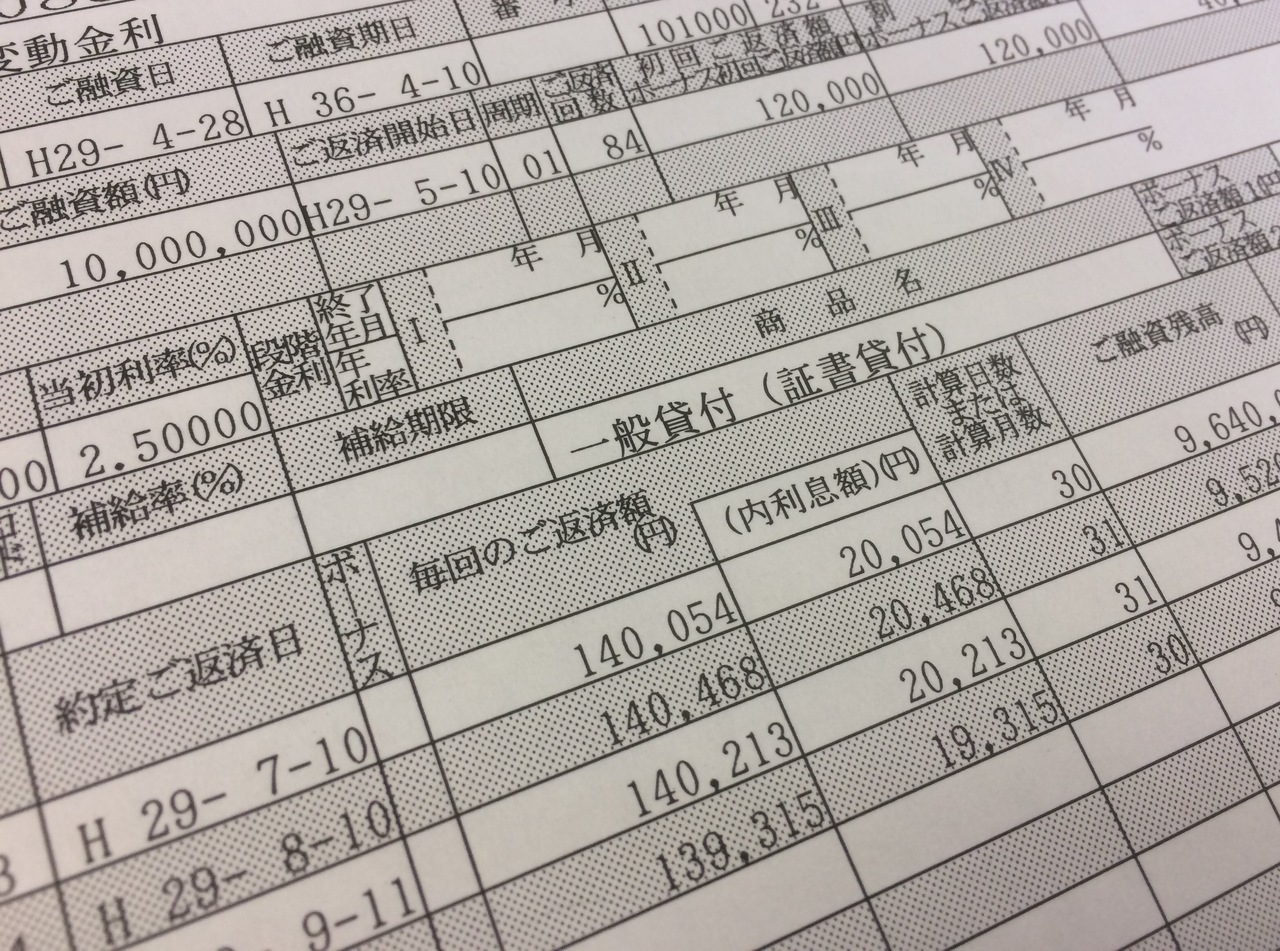 変動金利
ご融資日
ご融資期日
101000
232
H29- 4-28
H 36- 4-10
ご返済開始日
周期
ご返済回数
初回ご返済額
ボーナス初回ご返済額
ボーナスご返済額
ご融資額(円)
10,000,000
H29- 5-10
01
84
120,000
120,000
当初利率(%)
2.50000
段階金利
終了年月
年利率
I
年 月
%
II
年 月
%
III
年 月
%
IV
年 月
%
補給率(%)
補給期限
商 品 名
一般貸付(証書貸付)
ボーナス
ご返済額
ボーナス
ご返済額
約定ご返済日
ボーナス
毎回のご返済額
(円)
(内利息額)(円)
計算日数
または
計算月数
ご融資残高
(円)
H 29- 7-10
140,054
20,054
30
9,640,
H 29- 8-10
140,468
20,468
31
9,520
9-11
140,213
20,213
31
139,315
19,315
30